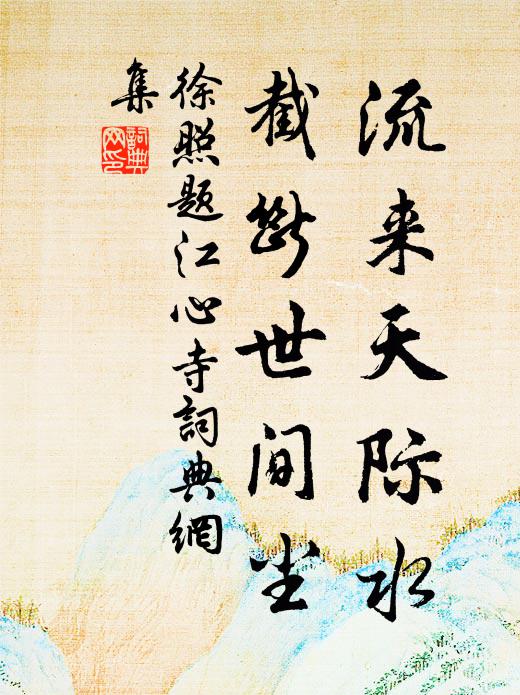 流来天际水
截断世间尘
徐照题江心寺詞典網
集
詞典網印